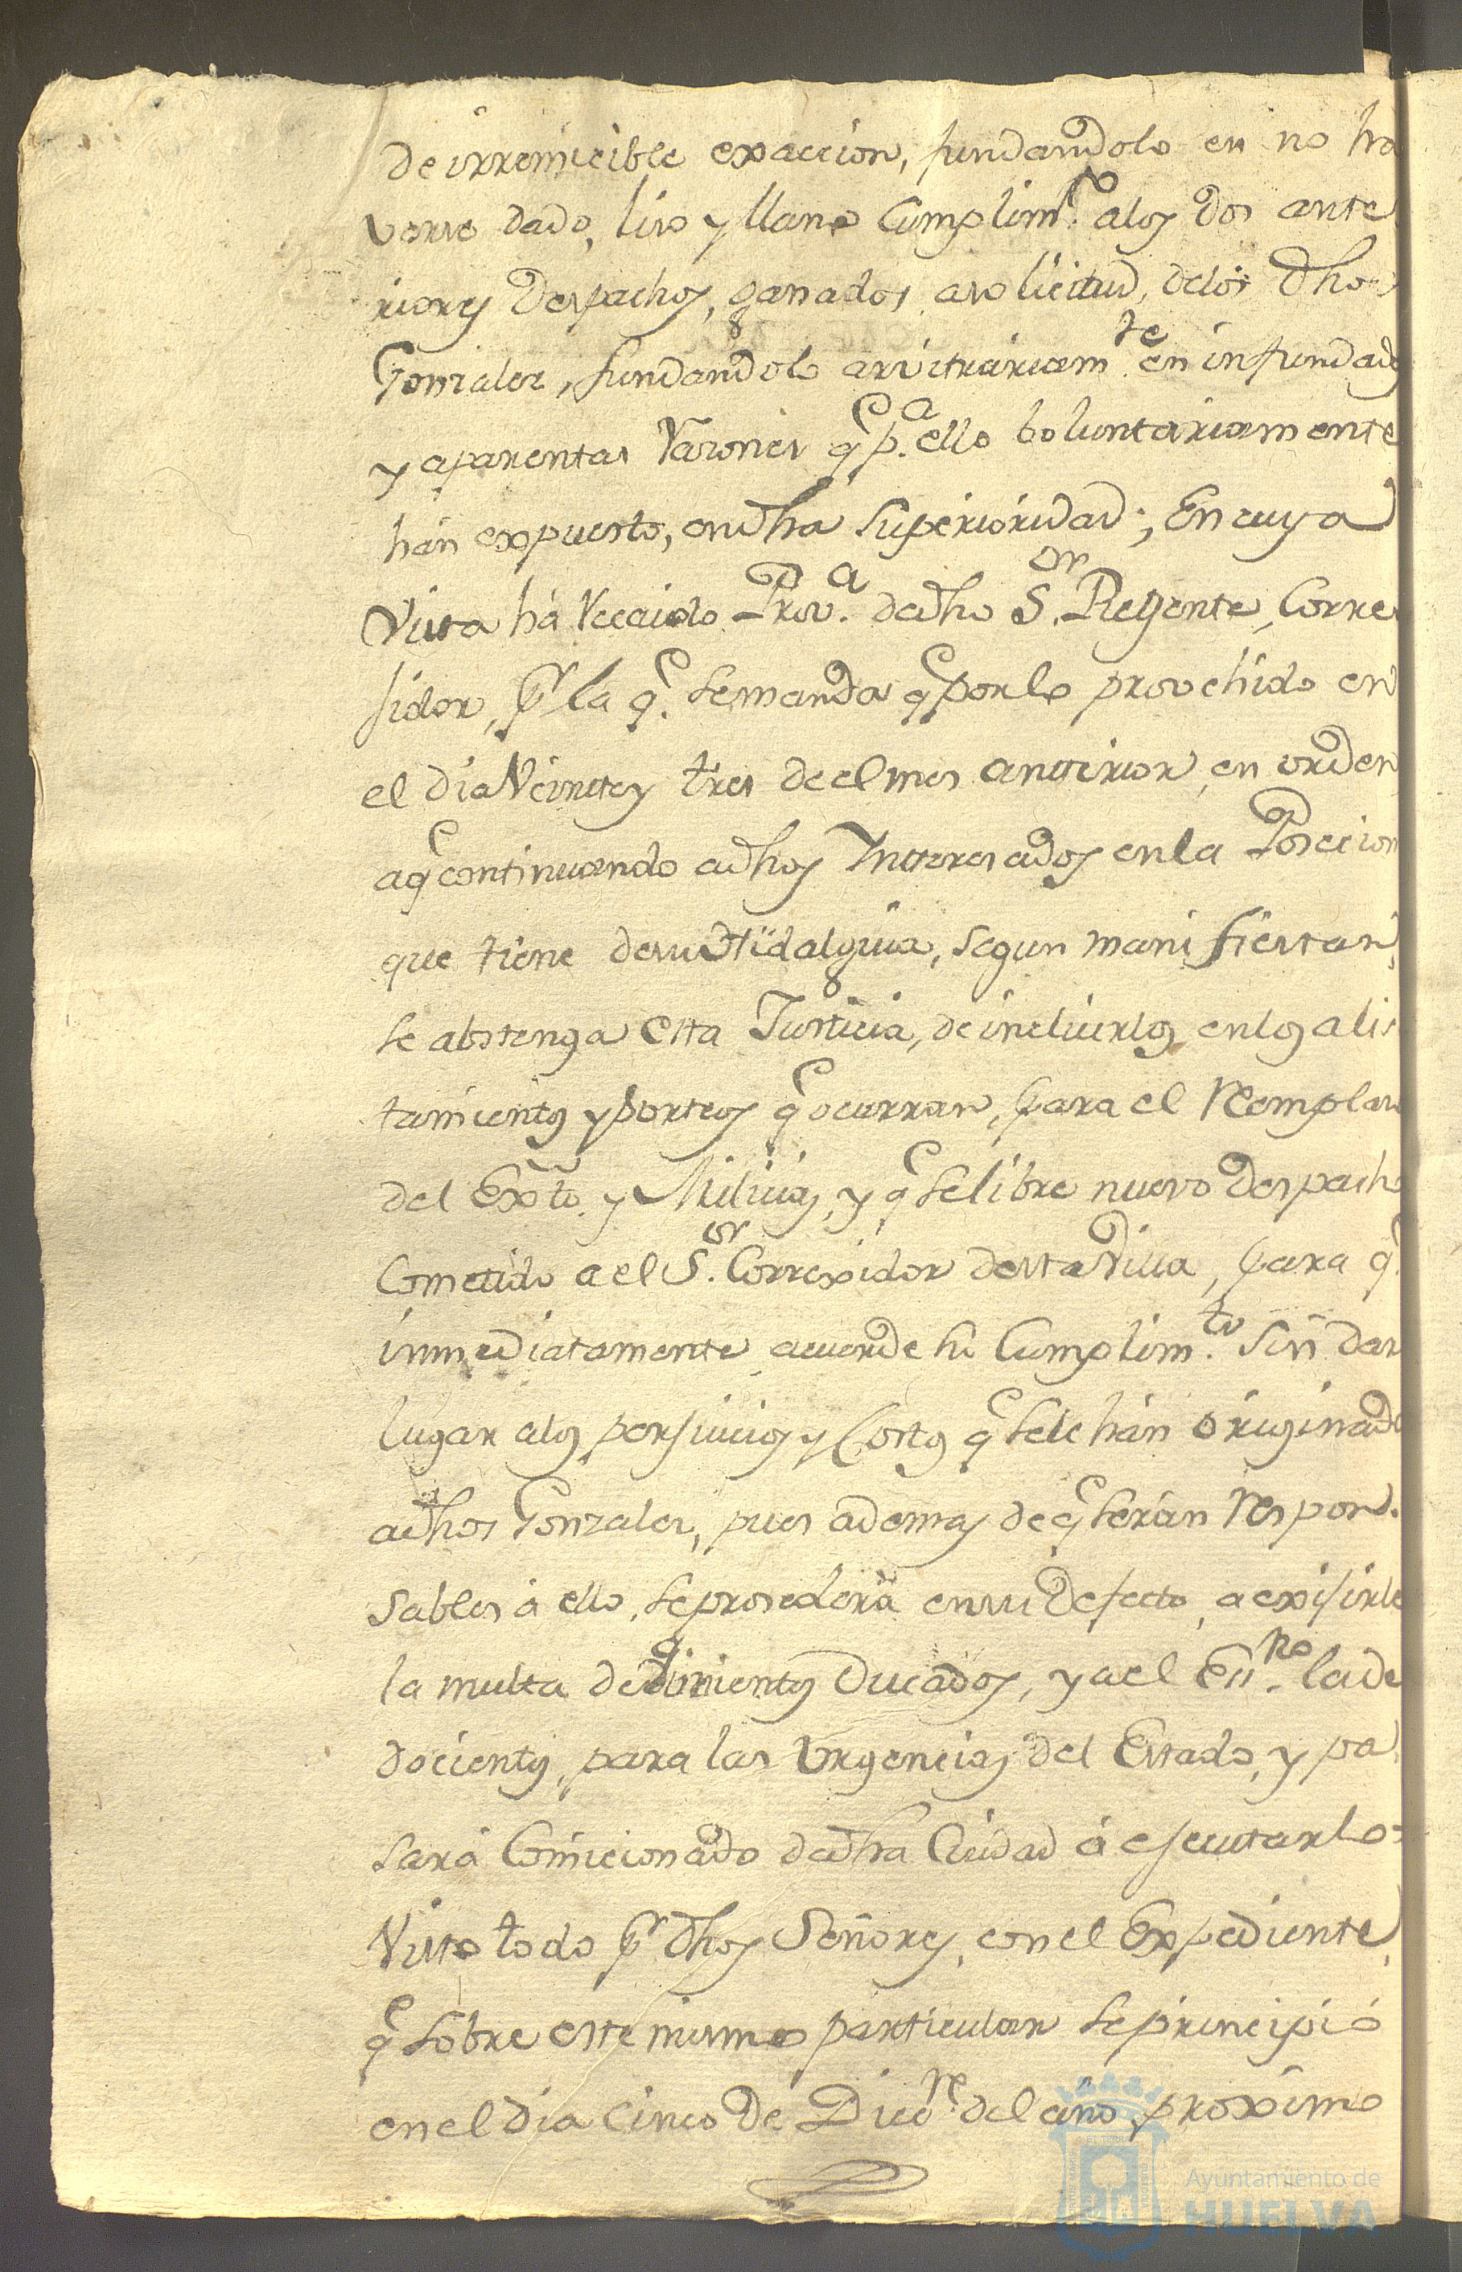 de irremicible exaccion, fundandolo en no ha
verse dado, liso y llano Cumplim.to alos dos ante
riores Despachos, ganados asolicitud, delos dhos
Gonzales, fundandolo arvitrariam.te en infundadas
y aparentes Razones q.e p.a ello boluntariamente
hán expuesto, endha Superioridad; En cuya
Vista há Recaido Prov.a dedho S.or Regente, Corre
sidor, pr la q.e semanda q.e porlo provehido en
el dia Veinte y tres de el mes anterior, en orden
aq.e continuando adhos Interesados enla Poscecion
que tiene desu Hidalguia, segun manifiestan,
se abstenga esta Justicia, de incluirlos enlos alis
tamientos y sorteos q.e ocurran, para el Remplaso
del Exto. y Milicias, y q.e selibre nuevo despacho
Cometido a el S.or Correxidor destaVilla, para q.e
inmediatamente acuerde su Cumplim.to Sin dar
lugar alos persuicios y Costos q.e sele hán originado
adhos Gonzales, pues ademas deq.e serán Respon
sables á ello, seprosederá ensu defecto, a exisirle
la multa de quinientos Ducados, y a el Es.no lade
docientos, para las Urgencias del Estado, y pa
sará Comicionado dedha Ciudad á esecutarlo:
Visto todo pr dhos Señores, con el Expediente,
q.e sobre este mismo particular seprincipió
en el dia Cinco de Dice.re del año proximo
Ayuntamiento de
HUELVA